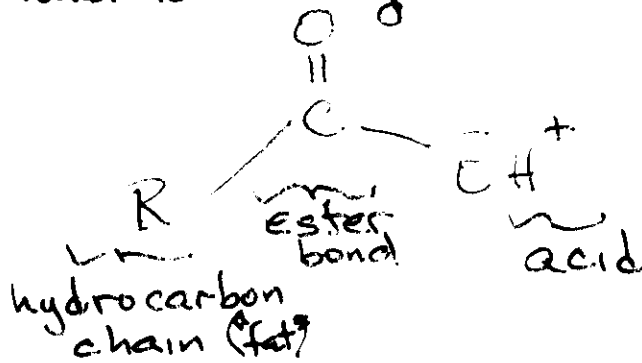 O
||
C
R
H+
ester
bond
acid
hydrocarbon
chain ("fat"